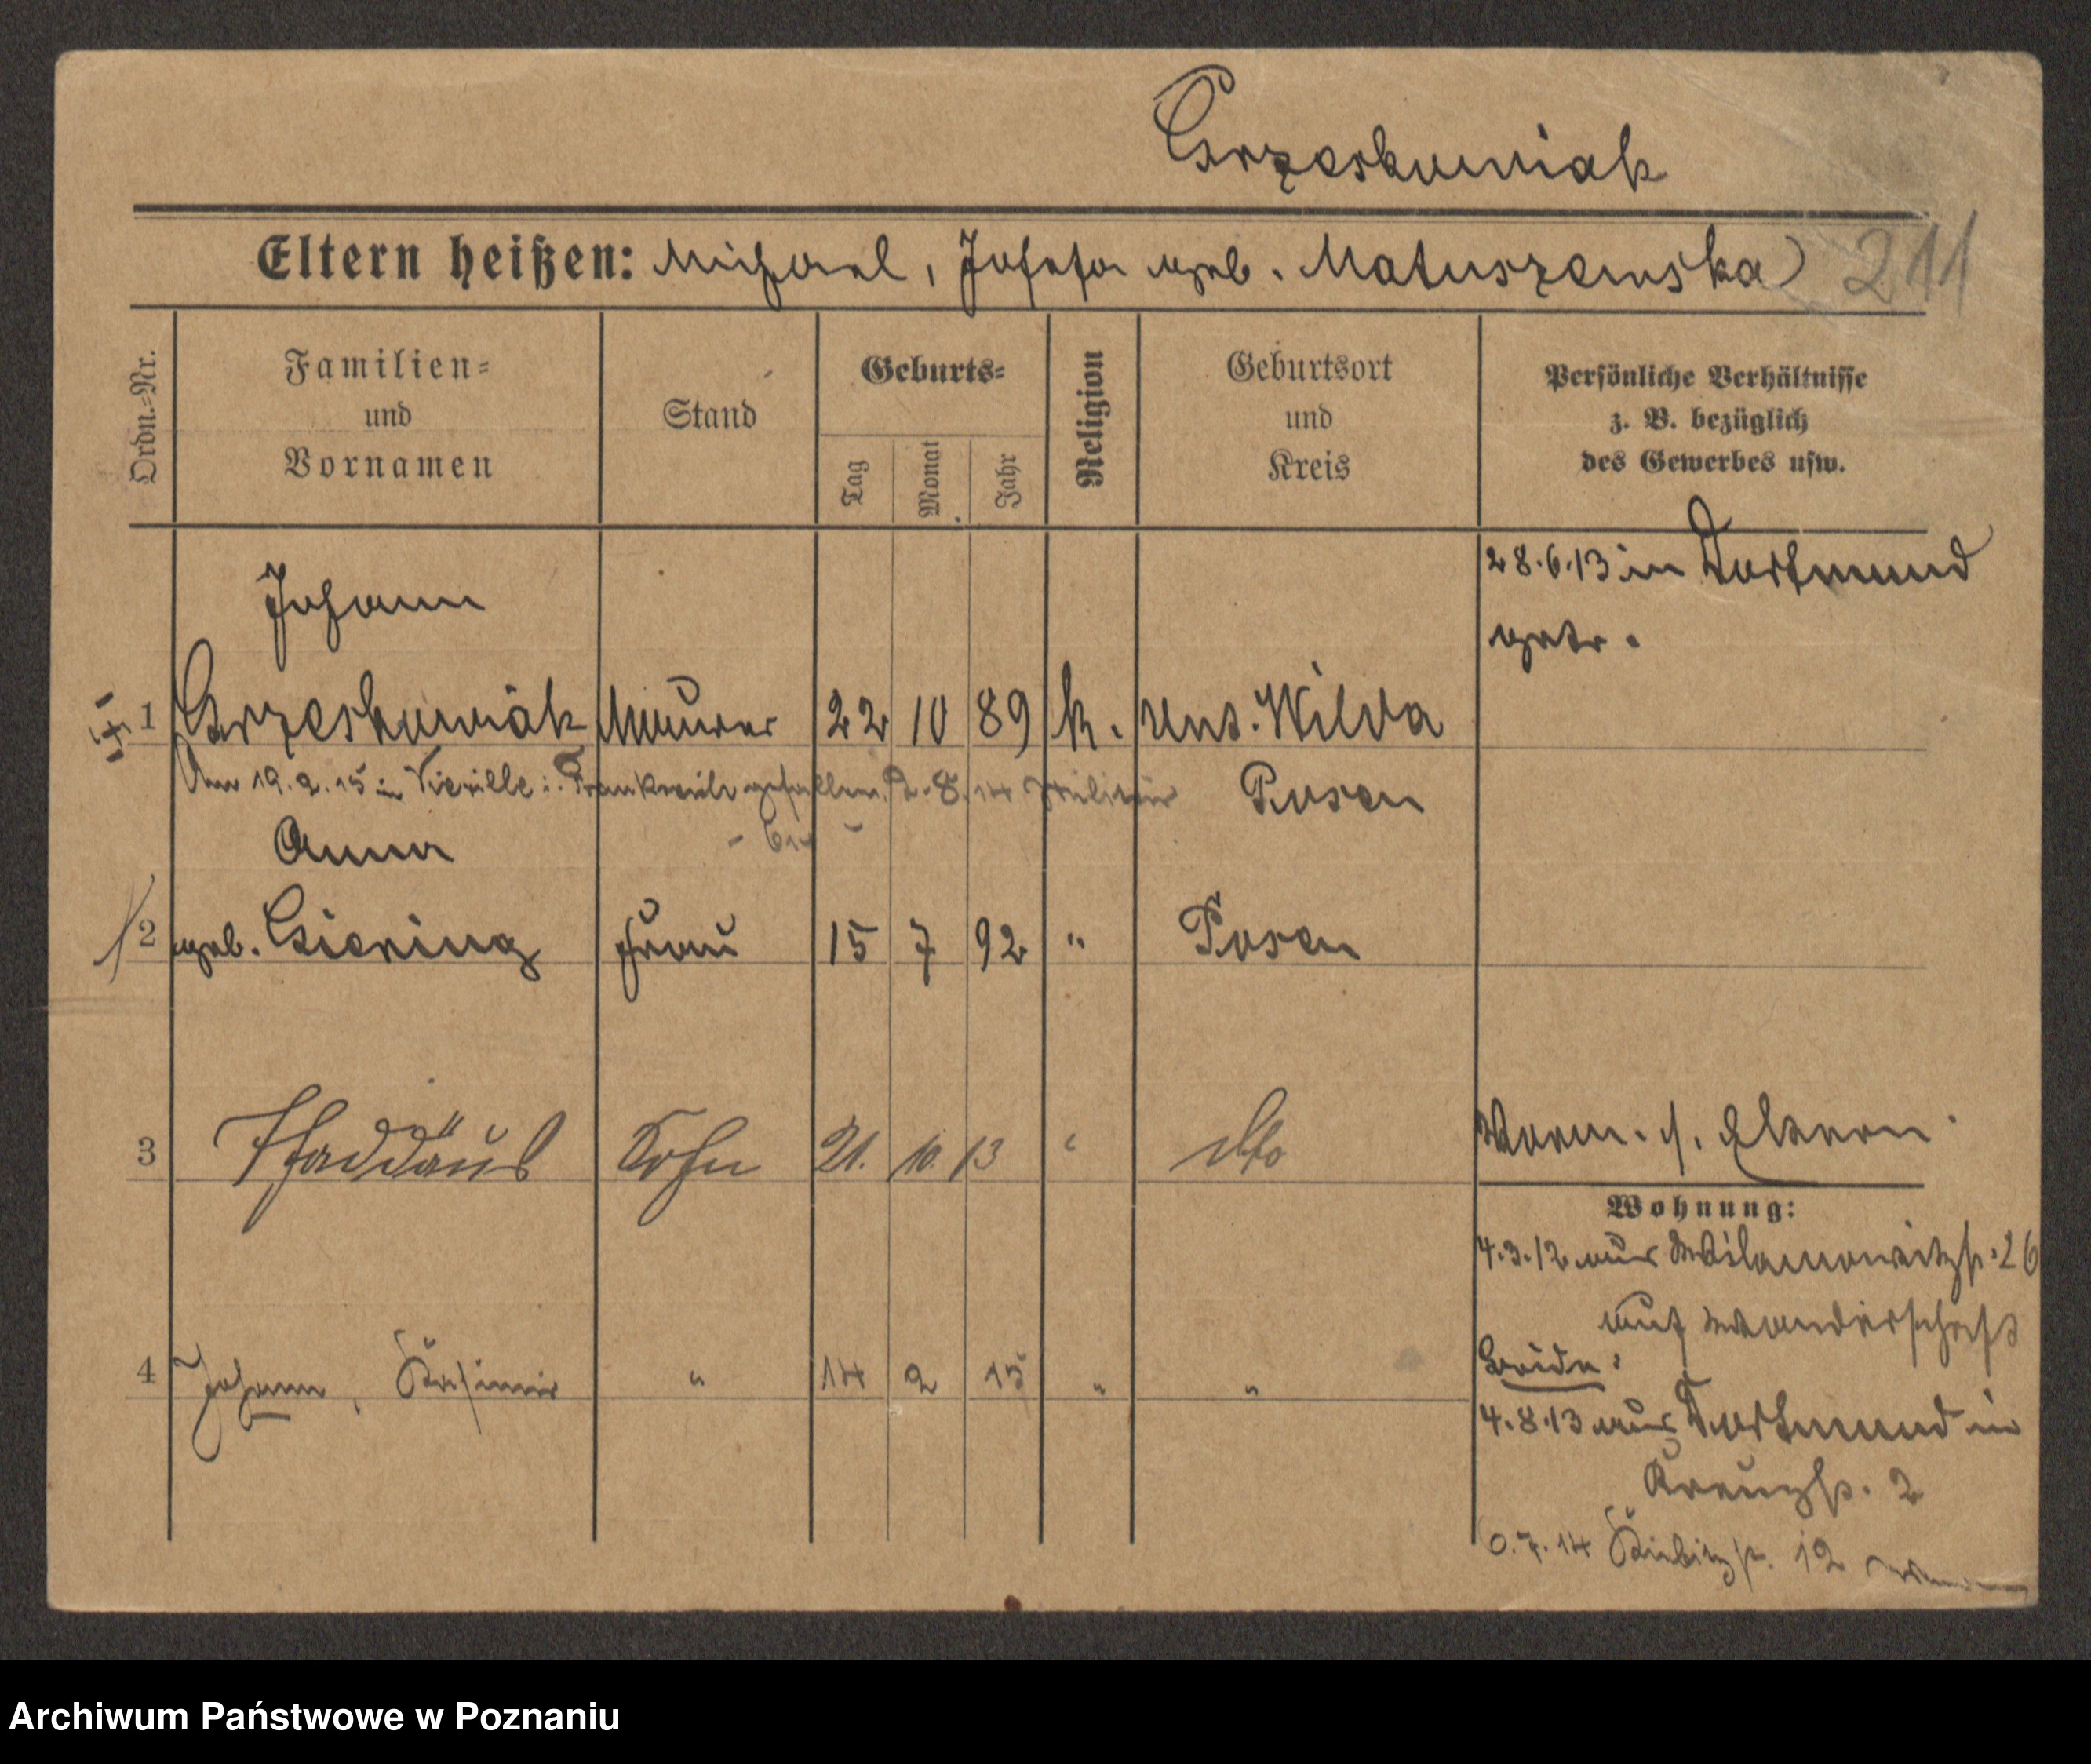 Grzeskowiak
Eltern heißen: Michael, Josefa geb. Matuszewska
211
Ordn.=Nr.
Familien=
und
Vornamen
Stand
Geburts=
Tag
Monat
Jahr
Religion
Geburtsort
und
Kreis
Persönliche Verhältnisse
z. B. bezüglich
des Gewerbes usw.
28.6.13 in Dortmund
getr.
Johann
1 Grzeskowiak Maurer 22 10 89 k. Unt. Wilda
Am 19.2.15 in Vieville i. Frankreich gefallen. 2.8.14 Militär
Posen
Anna
2 geb. Giering Frau 15 7 92 " Posen
3 Thaddäus Sohn 21. 10. 13 " dto
Verm. s. Eltern.
Wohnung:
4.3.12 aus Wilamowitzstr. 26
auf Wanderschaft
4 Johann, Kasimir " 14 2 15 " "
Beide:
4.8.13 aus Dortmund in
Kreuzstr. 2
6.7.14 Kiebitzstr. 12
Archiwum Państwowe w Poznaniu